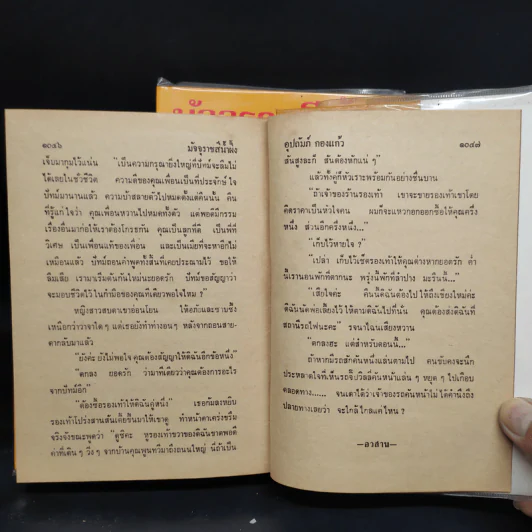 ๑๐๔๖
มัจจุราชสีน้ำผึ้ง
เจ็บมากุมไว้แน่น "เป็นความกรุณายิ่งใหญ่ที่บัทม์จะลืมไม่
ได้เลยในชั่วชีวิต ความดีของคุณเพื่อนเป็นที่ประจักษ์ใจ
บัทม์มานานแล้ว ความบ้าสลายตัวไปหมดตั้งแต่คืนนั้น คืน
ที่รู้แก่ใจว่า คุณเพื่อนหวานไปหมดทั้งตัว แต่พอดีมีกรรม
เรื่องอื่นมาก่อให้เราต้องโกรธกัน คุณเป็นลูกที่ดี เป็นพี่ที่
วิเศษ เป็นเพื่อนแท้ของเพื่อน และเป็นเมียที่จะหาอีกไม่
เหมือนแล้ว บัทม์ถอนคำพูดทั้งสิ้นที่เคยประณามไว้ ขอให้
ลืมเสีย เรามาเริ่มต้นกันใหม่นะยอดรัก บัทม์ขอสัญญาว่า
จะมอบชีวิตไว้ในกำมือของคุณทีเดียวพอใจไหม ?"
หญิงสาวสบตาเขาอ่อนโยน ให้อภัยและซาบซึ้ง
เหนือกว่าวาจาใด ๆ แต่เธอยังทำท่างอน ๆ หลังจากถอนสาย-
ตากลับมาแล้ว
"ยังค่ะ ยังไม่พอใจ คุณต้องสัญญาให้ดิฉันอีกข้อหนึ่ง"
"ตกลง ยอดรัก ว่ามาทีเดียวว่าคุณต้องการอะไร
จากบัทม์อีก"
"ต้องซื้อรองเท้าให้ดิฉันคู่หนึ่ง" เธอก้มลงหยิบ
รองเท้าโปร่งสานส้นเตี้ยขึ้นมาให้เขาดู ทำหน้าตาเคร่งขรึม
จริงจังขณะพูดว่า "ดูซิคะ หูรองเท้าขวาของดิฉันขาดพอดี
ค่าที่เดิน ๆ วิ่ง ๆ จากบ้านคุณพูนทวีมาถึงถนนใหญ่ นี่ถ้าเป็น
อุปถัมภ์ กองแก้ว
๑๐๔๗
ส้นสูงละก็ ส้นต้องหักแน่ ๆ"
แล้วทั้งคู่ก็หัวเราะพร้อมกันอย่างชื่นบาน
"ถ้าเจ้าของร้านรองเท้า เขาจะขายรองเท้าเขาโดย
คิดราคาเป็นหัวใจคน ผมก็จะแหวกอกออกซื้อให้คุณครึ่ง
หนึ่ง ส่วนอีกครึ่งหนึ่ง..."
"เก็บไว้หายใจ ?"
"เปล่า เก็บไว้เช็ดรองเท้าให้คุณต่างหากยอดรัก อ้ำ
นี้เรานอนพักที่ตากนะ พรุ่งนี้พักที่ลำปาง มะรืนนี้..."
"เสียใจค่ะ คืนนี้ดิฉันต้องไปให้ถึงเชียงใหม่ค่ะ
ดิฉันนัดพ่อเลี้ยงไว้ ให้ตามดิฉันไปที่นั่น คุณต้องส่งดิฉันที่
สถานีรถไฟนะคะ" รจนาไฉนเสียงหวาน
"ตกลงฮะ แต่สำหรับตอนนี้..."
ถ้าหากมีรถสักคันหนึ่งแล่นตามไป คนขับคงจะนึก
ประหลาดใจที่เห็นรถจี๊ปวิลลี่คันหน้าแล่น ๆ หยุด ๆ ไปเกือบ
ตลอดทาง...... จนเดาได้ว่าเจ้าของรถคันหน้าไม่ได้คำนึงถึง
ปลายทางเลยว่า จะใกล้ไกลแค่ไหน ?
—อวสาน—